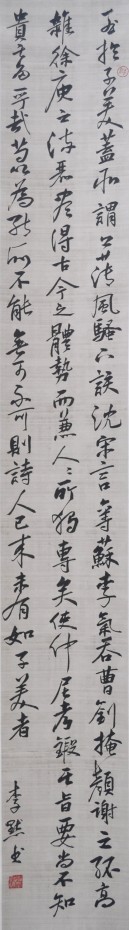 至於子美蓋所謂上薄風騷下該沈宋言奪蘇李氣吞曹劉掩顏謝之孤高
雜徐庾之流麗盡得古今之體勢而兼人々所獨專矣使仲尼考鍛其旨要尚不知
貴其多乎哉苟以為能所不能無可不可則詩人已來未有如子美者
李默书